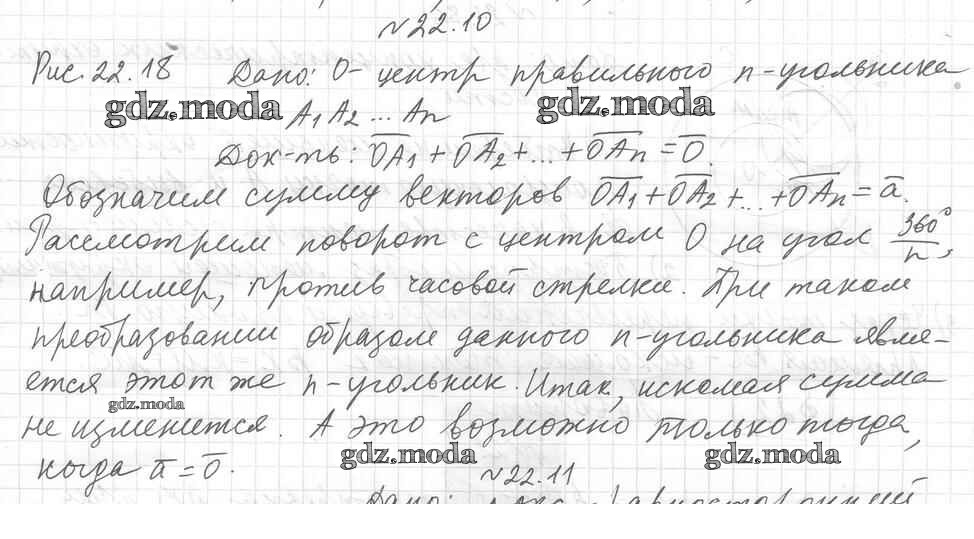 №22.10
Рис. 22.18 Дано: O - центр правильного n-угольника
gdz.moda gdz.moda
A₁A₂...Aₙ
Док-ть: O̅A̅₁ + O̅A̅₂ + ... + O̅A̅ₙ = 0̅.
Обозначим сумму векторов O̅A̅₁ + O̅A̅₂ + ... + O̅A̅ₙ = a̅.
Рассмотрим поворот с центром O на угол 360°/n,
например, против часовой стрелки. При таком
преобразовании образом данного n-угольника явля-
ется этот же n-угольник. Итак, искомая сумма
gdz.moda
не изменится. А это возможно только тогда,
когда a̅ = 0̅.
gdz.moda gdz.moda
№22.11
Дано: